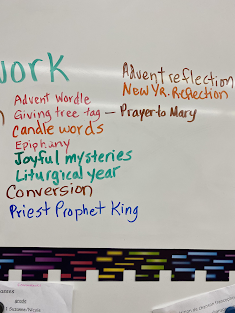 work
Advent Wordle
Giving tree tag — Prayer to Mary
Candle words
Epiphany
Joyful mysteries
Liturgical year
Conversion
Priest Prophet King
Advent reflection
New Yr. Reflection